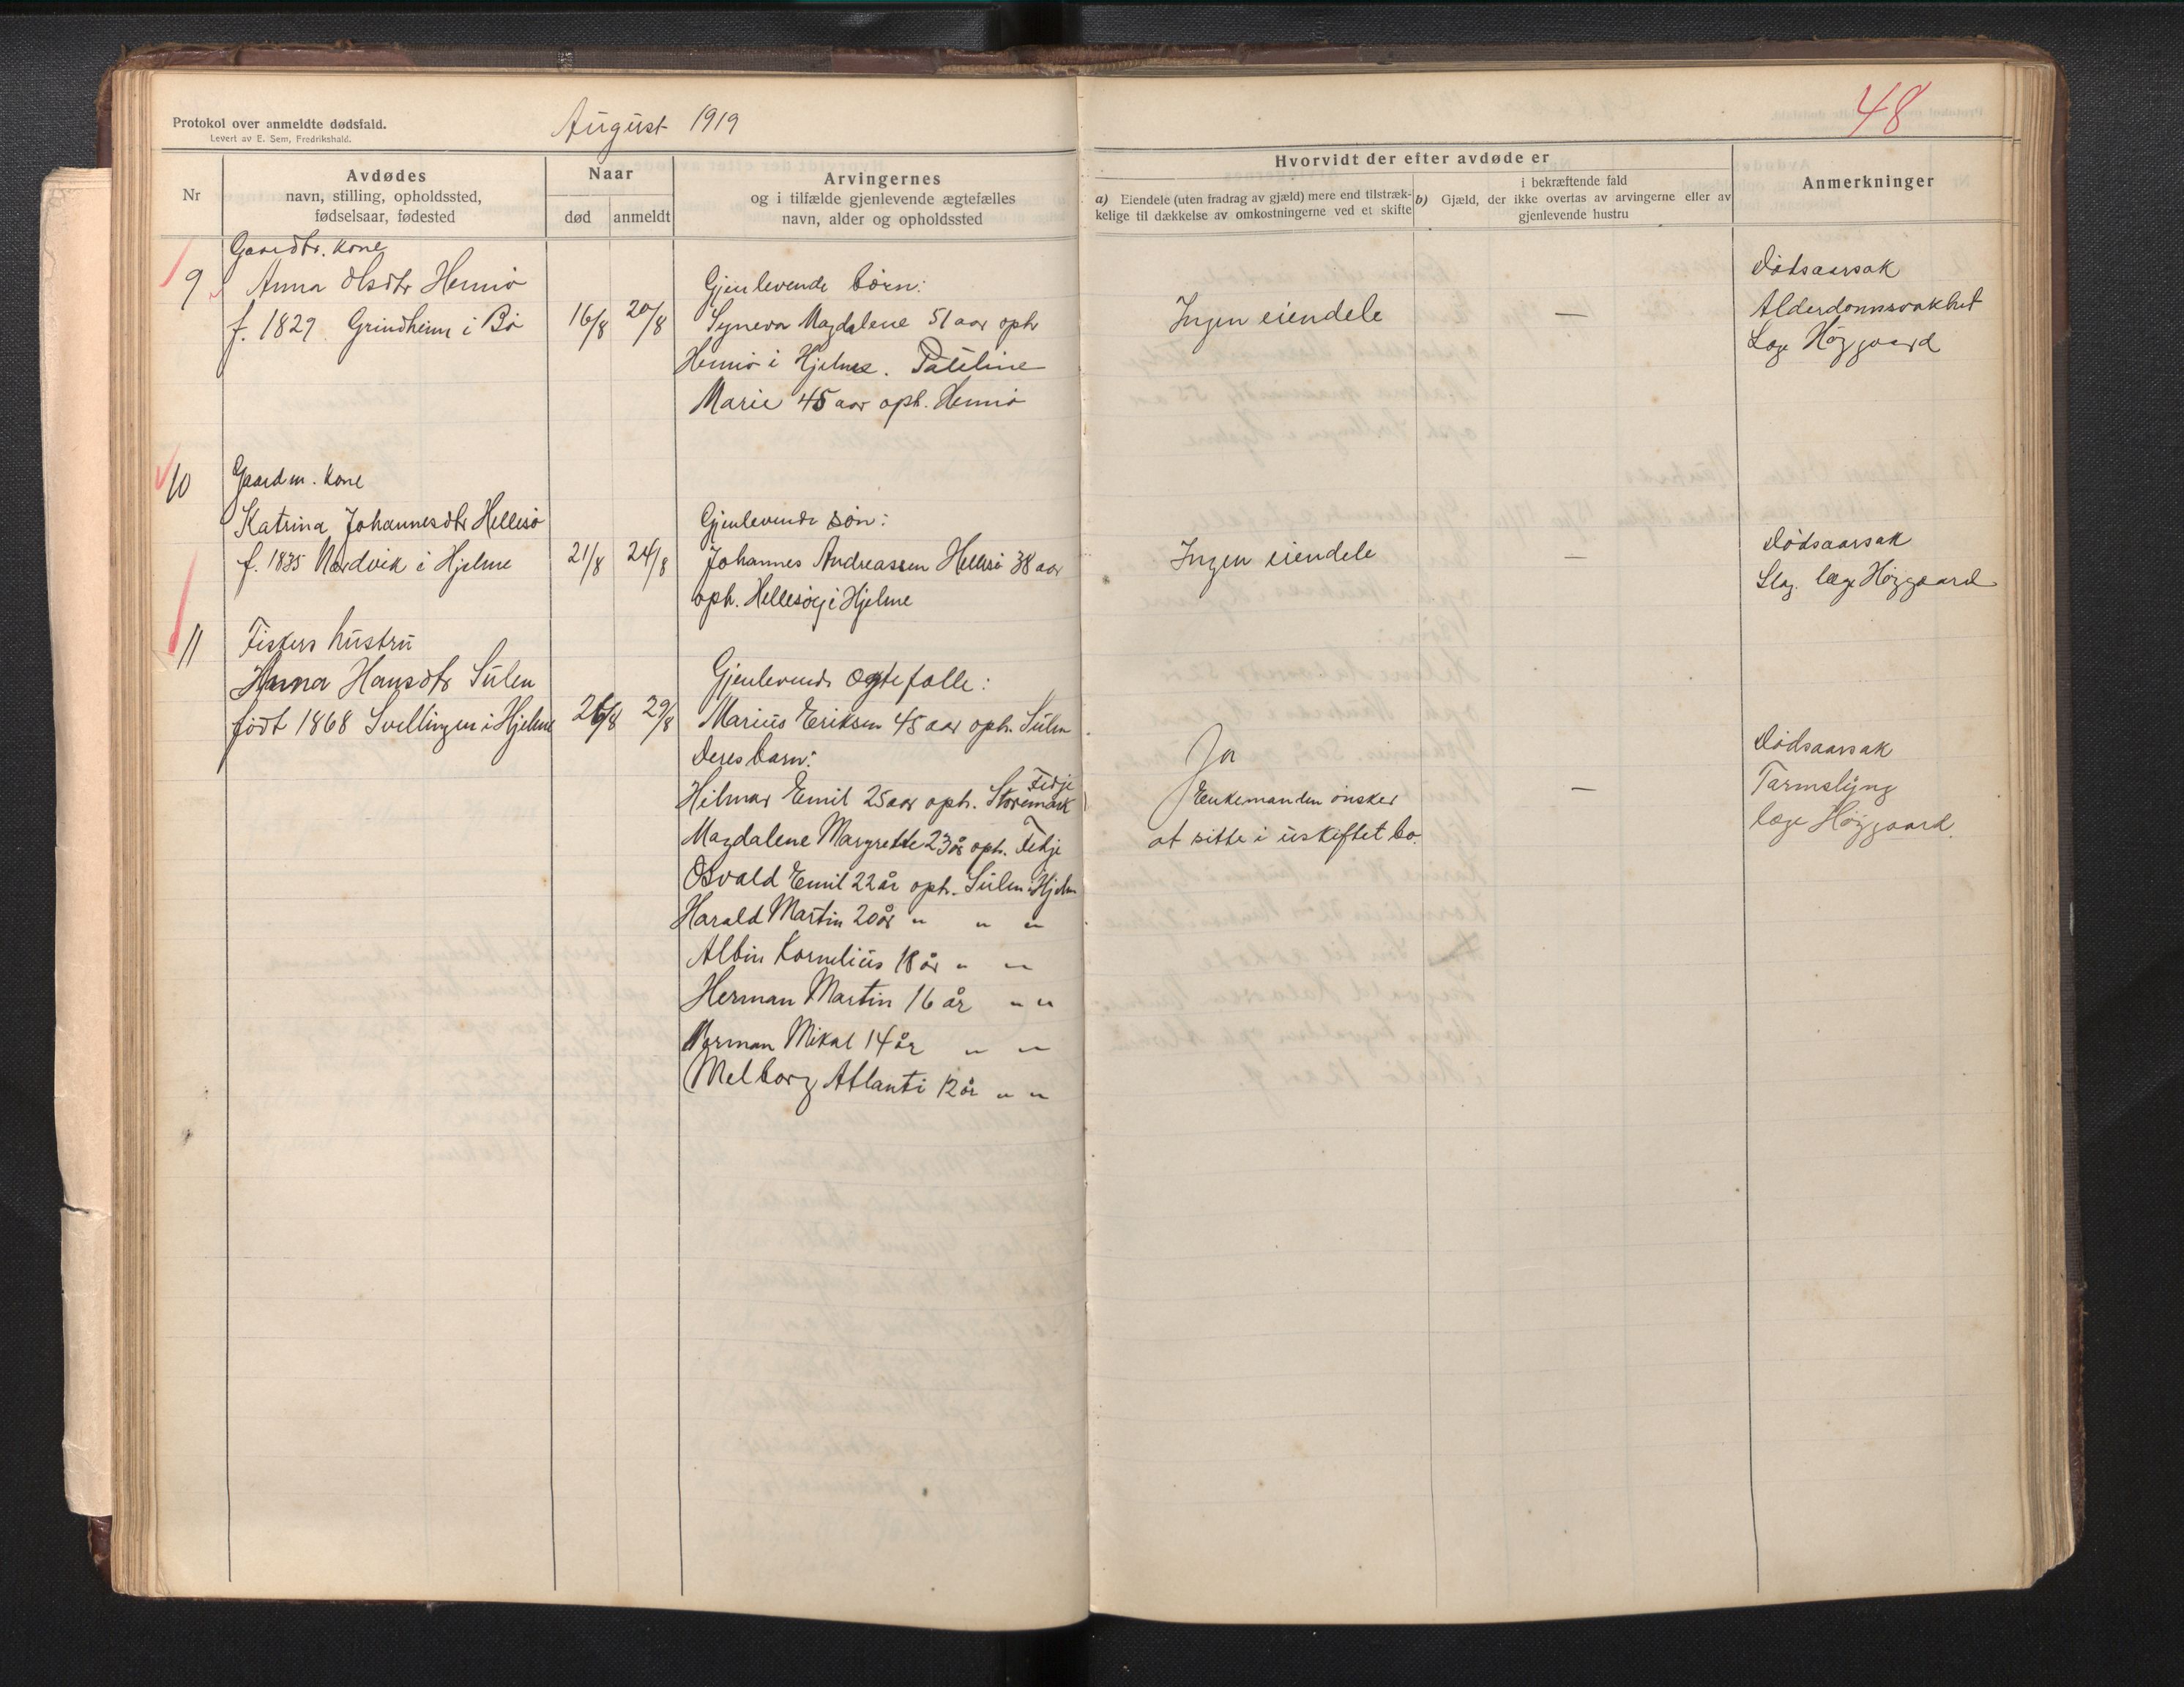 Protokol over anmeldte dødsfald.
Levert av E. Sem, Fredrikshald.
August 1919
48
Nr
Avdødes
navn, stilling, opholdssted,
fødselsaar, fødested
Naar
død anmeldt
Arvingernes
og i tilfælde gjenlevende ægtefælles
navn, alder og opholdssted
Hvorvidt der efter avdøde er
a) Eiendele (uten fradrag av gjæld) mere end tilstræk-
kelige til dækkelse av omkostningerne ved et skifte
i bekræftende fald
b) Gjæld, der ikke overtas av arvingerne eller av
gjenlevende hustru
Anmerkninger
9
Gaardbr. kone
Anna Olsdtr Hernø
f. 1829 Grindheim i Bø
16/8 20/8
Gjenlevende børn:
Syneva Magdalene 51 aar oph
Hernø i Hjelme. Pauline
Marie 45 aar oph. Hernø
Ingen eiendele
—
Dødsaarsak
Alderdomssvakhet
Læge Høggaard
10
Gaardm. kone
Katrina Johannesdtr Hellesø
f. 1835 Nordvik i Hjelme
21/8 24/8
Gjenlevende søn:
Johannes Andreassen Hellesø 38 aar
oph. Hellesøy i Hjelme
Ingen eiendele
—
Dødsaarsak
Slag. læge Høggaard
11
Fiskers hustru
Anna Hansdtr Sulen
født 1868 Svellingen i Hjelme
26/8 29/8
Gjenlevende ægtefælle:
Marius Eriksen 45 aar oph. Sulen
Deres barn:
Hilmar Emil 25 aar oph. Storemark Fedje
Magdalene Margrette 23 år oph. Fedje
Osvald Emil 22 år oph. Sulen i Hjelm
Harald Martin 20 år " " "
Albin Kornelius 18 år " "
Herman Martin 16 år " "
Norman Mikal 14 år " "
Melborg Atlanti 12 år " "
Ja
Enkemanden ønsker
at sitte i uskiftet bo.
—
Dødsaarsak
Tarmslyng
læge Høggaard.